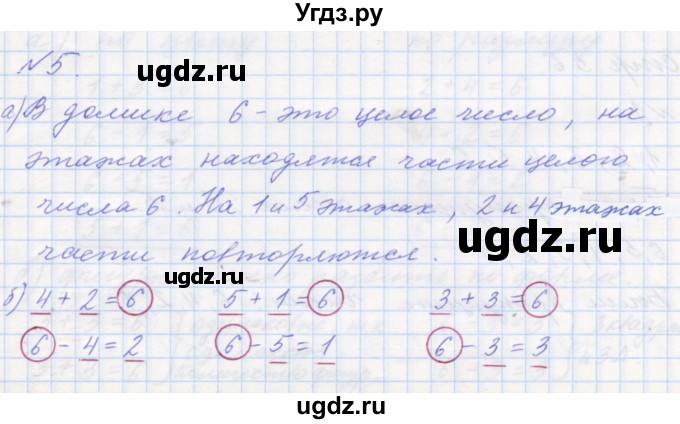 Угдз.ру
№5.
а) В домике 6 - это целое число, на
этажах находятся части целого
числа 6. На 1 и 5 этажах, 2 и 4 этажах
части повторяются.
б) 4 + 2 = 6 5 + 1 = 6 3 + 3 = 6
6 - 4 = 2 6 - 5 = 1 6 - 3 = 3
ugdz.ru
ugdz.ru
ugdz.ru
ugdz.ru
ugdz.ru
ugdz.ru